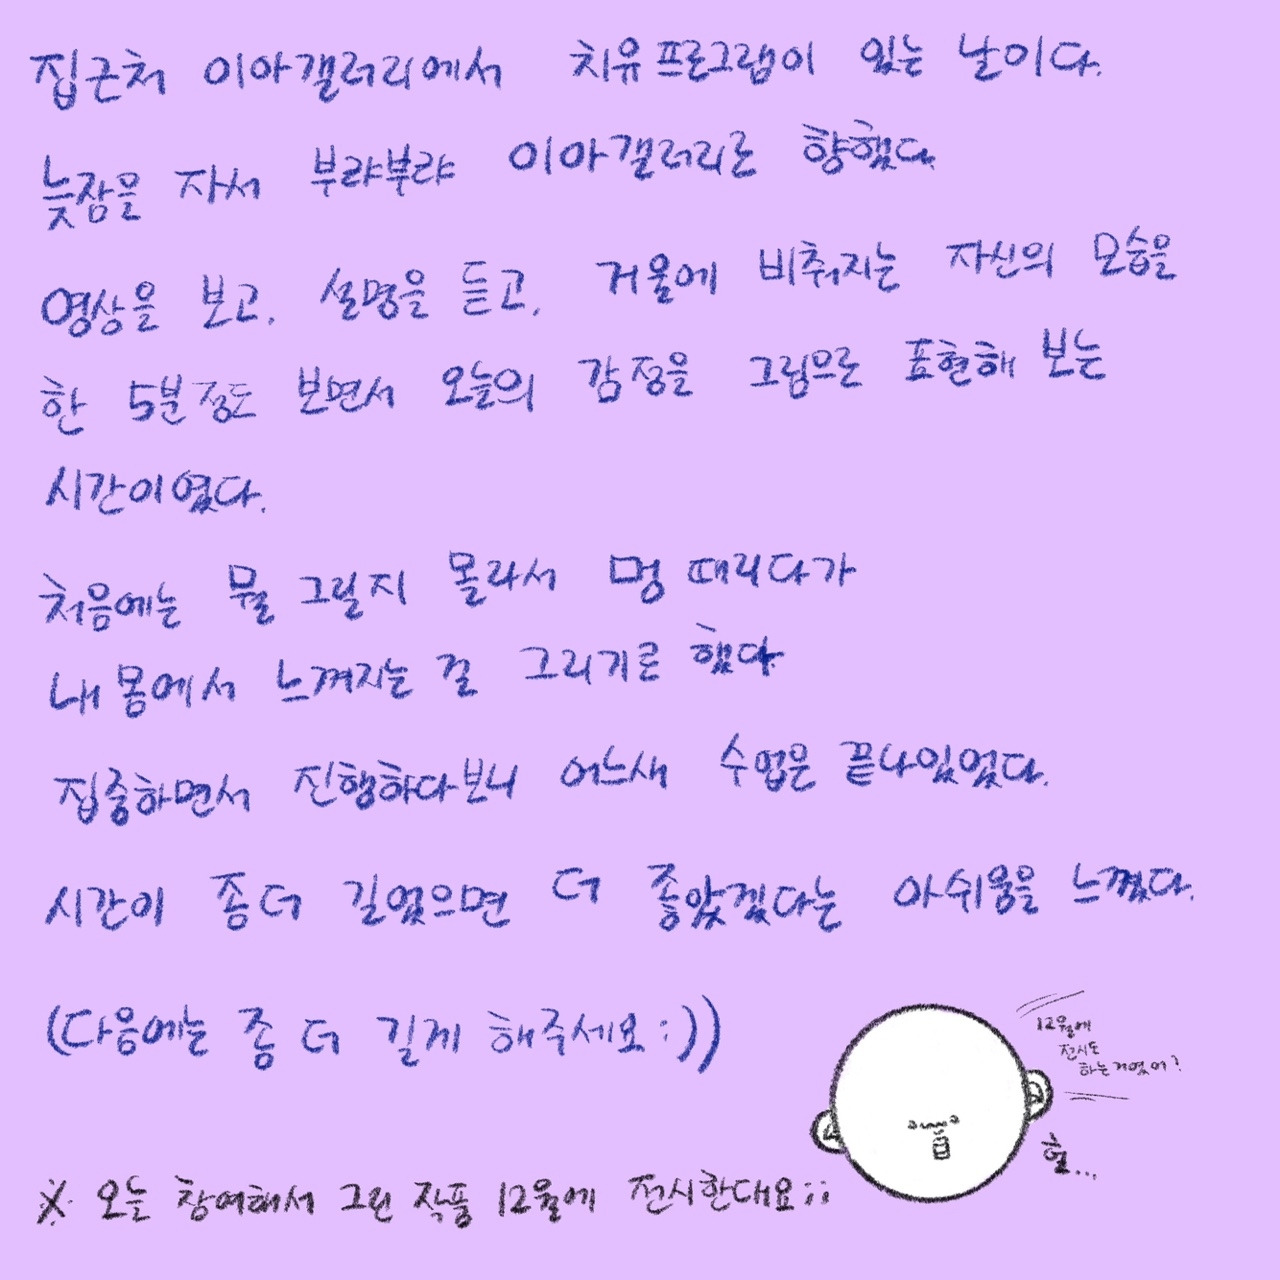 집근처 이아갤러리에서 치유프로그램이 있는 날이다.
늦잠을 자서 부랴부랴 이아갤러리로 향했다.
영상을 보고, 설명을 듣고, 거울에 비춰지는 자신의 모습을
한 5분정도 보면서 오늘의 감정을 그림으로 표현해 보는
시간이였다.
처음에는 뭘 그릴지 몰라서 멍 때리다가
내 몸에서 느껴지는 걸 그리기로 했다.
집중하면서 진행하다보니 어느새 수업은 끝나있었다.
시간이 좀 더 길었으면 더 좋았겠다는 아쉬움을 느꼈다.
(다음에는 좀 더 길게 해주세요:))
12월에
전시도
하는거였어?
헐...
※ 오늘 참여해서 그린 작품 12월에 전시한대요;;